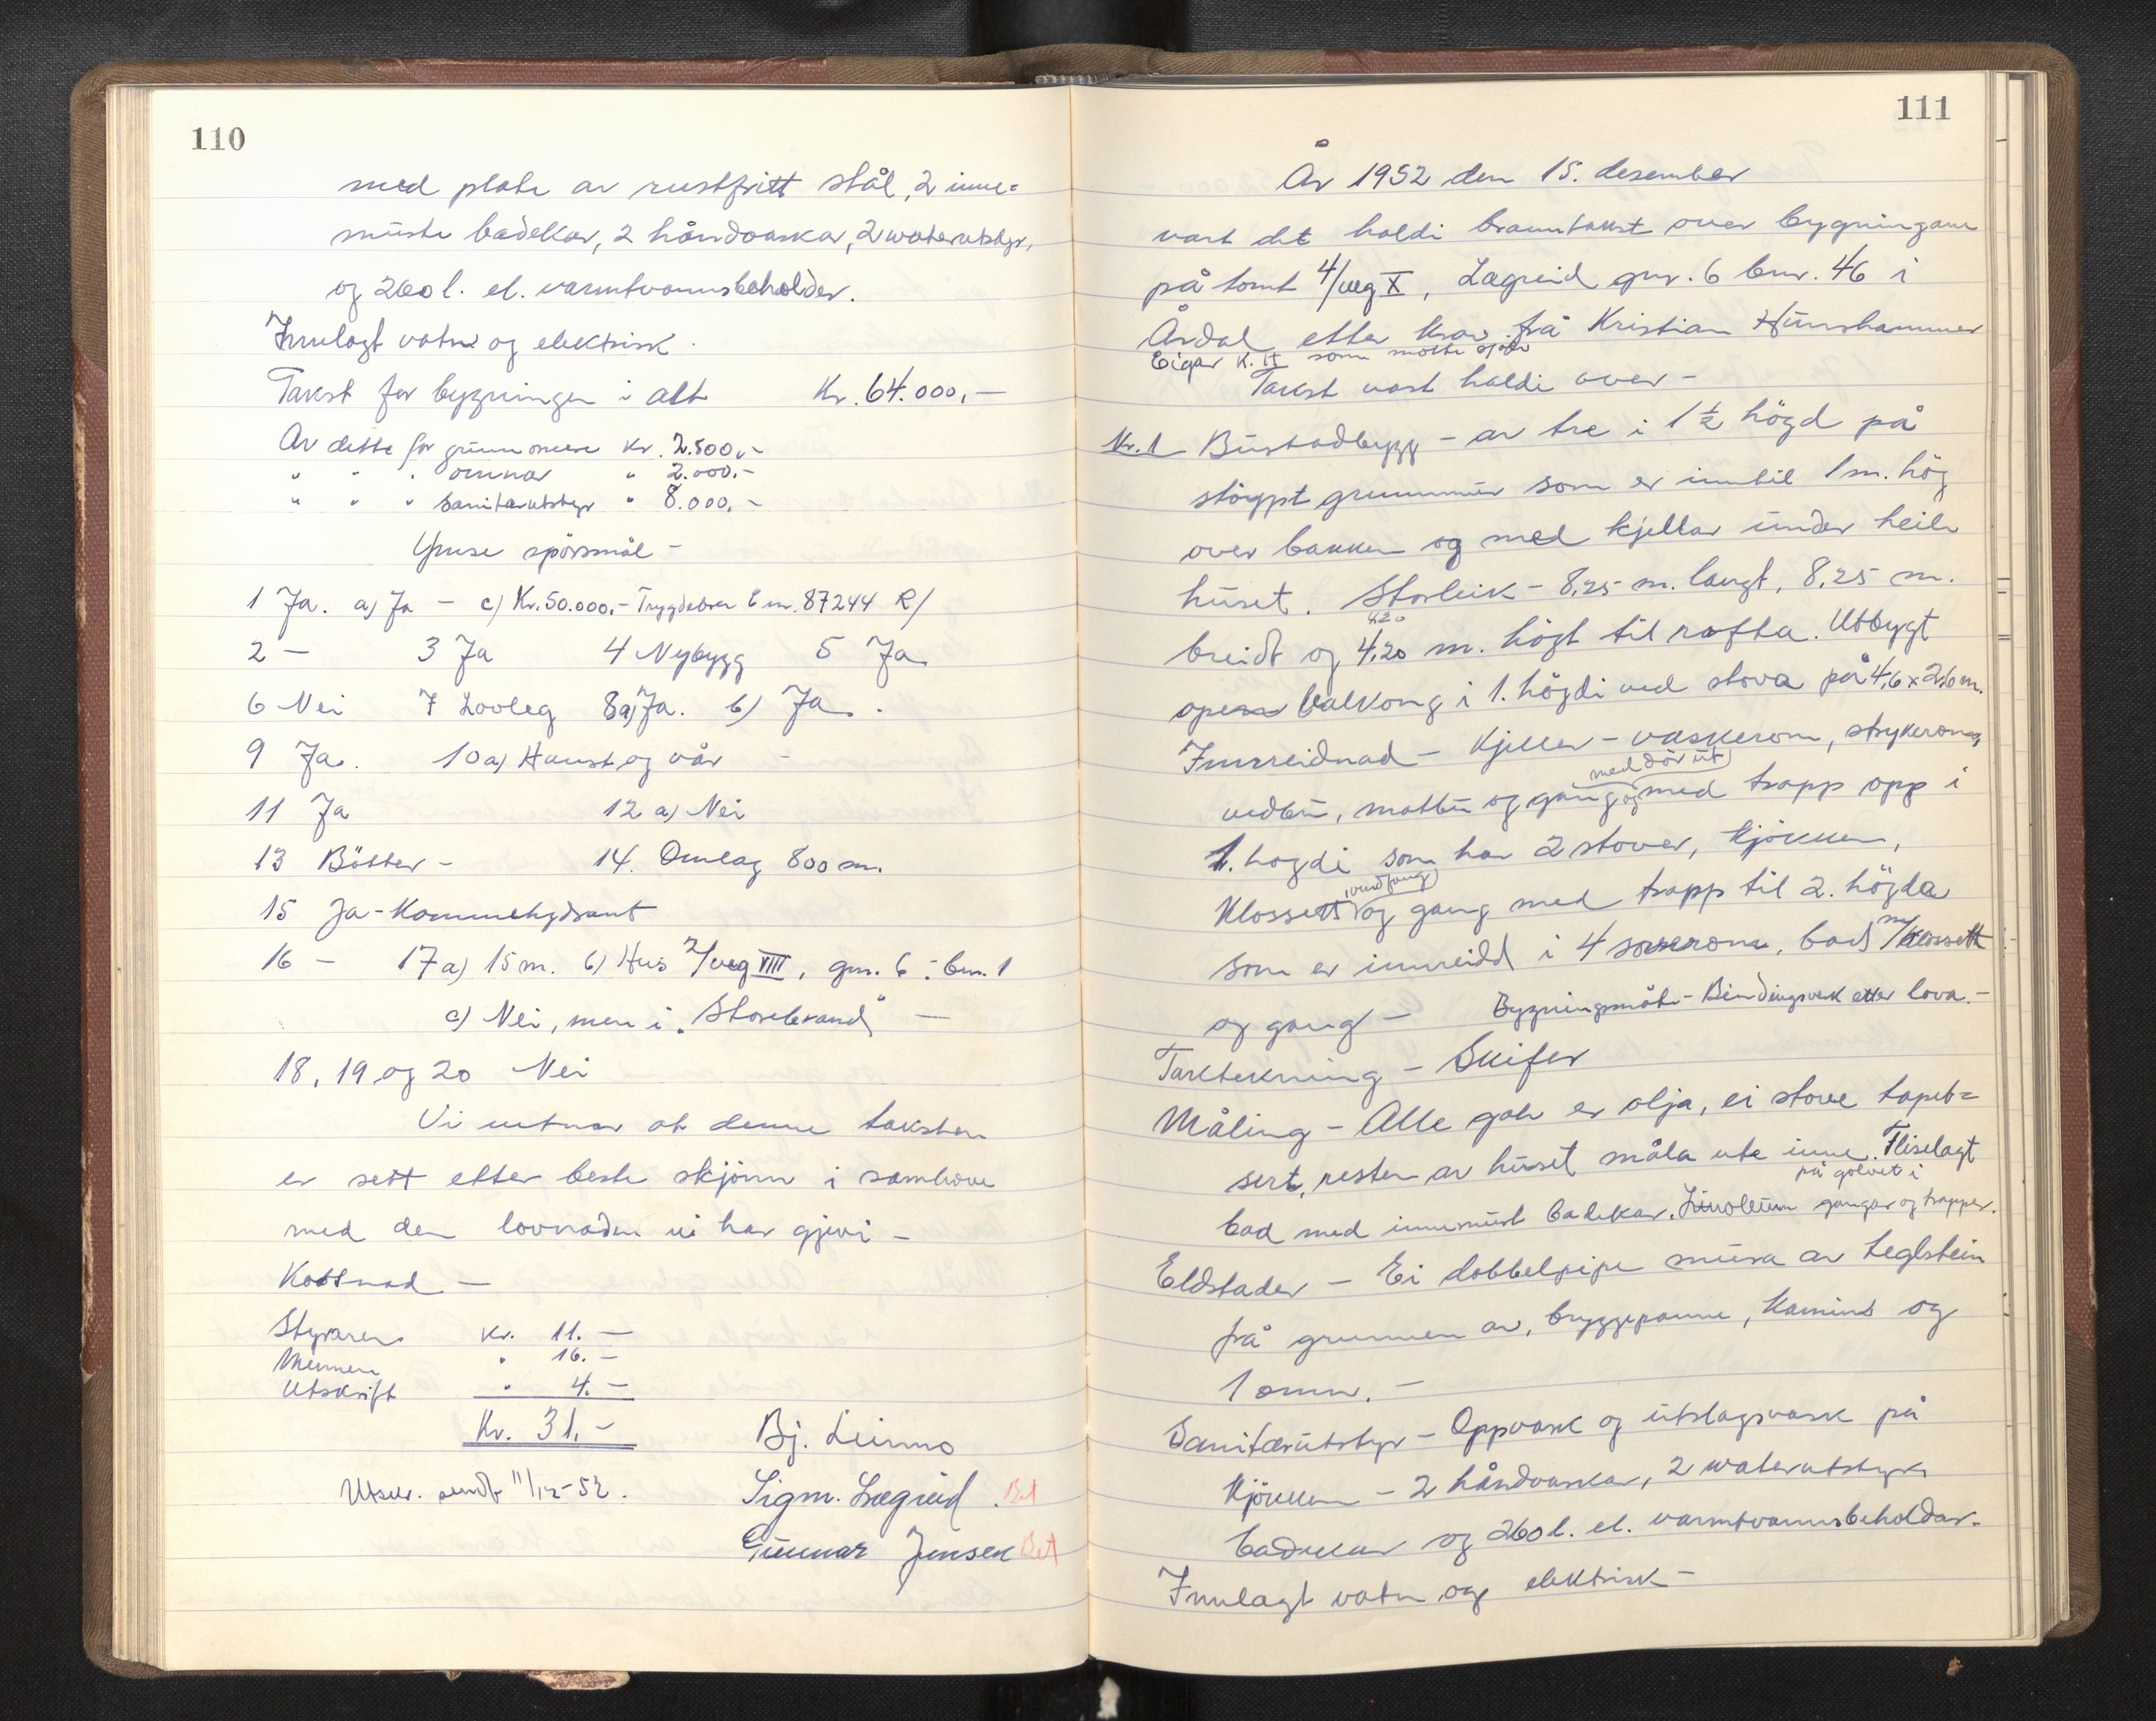 110
med plate av rustfritt stål, 2 inne=
murte badekar, 2 håndvaskar, 2 waterutstyr,
og 260 l. el. varmtvannsbeholder.
Innlagt vatn og elektrisk.
Takst for bygningen i alt Kr. 64.000,-
Av dette for grunnmure Kr. 2.500,-
" " " omnar " 2.000,-
" " " Sanitærutstyr " 8.000,-
Ymse spörsmål -
1 Ja. a) Ja - c) Kr. 50.000,- Trygdebrev b nr. 87244 R/
2 - 3 Ja 4 Nybygg 5 Ja
6 Nei 7 Lovleg 8a) Ja. b) Ja.
9 Ja. 10 a) Haust og vår -
11 Ja 12 a) Nei
13 Bötter - 14. Omlag 800 m.
15 Ja - Kommehydrant
16 - 17 a) 15 m. b) Hus 2/veg VIII, gnr. 6 : bnr. 1
c) Nei, men i "Storebrand" -
18, 19 og 20 Nei
Vi vitnar at denne taksten
er sett etter beste skjönn i samhöve
med den lovnaden vi har gjevi -
Kostnad -
Styraren Kr. 11.-
Mennene " 16.-
Utskrift " 4.-
Kr. 31.-
Bj. Leirmo
Utskr. sendt 11/12-52. Sigm. Lægreid. Bet
Gunnar Jensen Bet
111
År 1952 den 15. desember
vart det haldi branntakst over bygningane
på tomt 4/veg X, Lægreid gnr. 6 bnr. 46 i
Årdal etter krav frå Kristian Hunshammer
Eigar K. H. som møtte sjölv
Takst vart haldi over -
Nr. 1 Bustadbygg - av tre i 1 ½ högd på
stöypt grunnmur som er inntil 1 m. hög
over bakken og med kjellar under heile
huset. Storleik - 8,25 m. langt, 8,25 m.
4,20
breidt og 4,20 m. högt til rafta. Utbygt
open balkong i 1. högdi ved stova på 4,6 x 2,10 m.
Innreidnad - Kjeller - vaskerom, strykerom,
med dör ut
vedbu, matbu og gang og med trapp opp i
1. hogdi som har 2 stover, kjökken,
vindfang
Klossett og gang med trapp til 2. högda
som er innreidd i 4 soverom, bad m/klossett
og gang - Bygningsmåte - Bindingsverk etter lova. -
Taktekning - Skifer
Måling - Alle golv er olja, ei stove tapet=
sert, resten av huset måla ute inne. Fliselagt
på golvet i
bad med innemurt badekar. Linoleum gangar og trapper.
Eldstader - Ei dobbelpipe mura av teglstein
frå grunnen av, bryggepanne, kamin og
1 omn. -
Sanitærutstyr - Oppvask og utslagsvask på
kjökken - 2 håndvaskar, 2 waterutstyr,
badekar og 260 l. el. varmtvannsbeholdar.
Innlagt vatn og elektrisk -